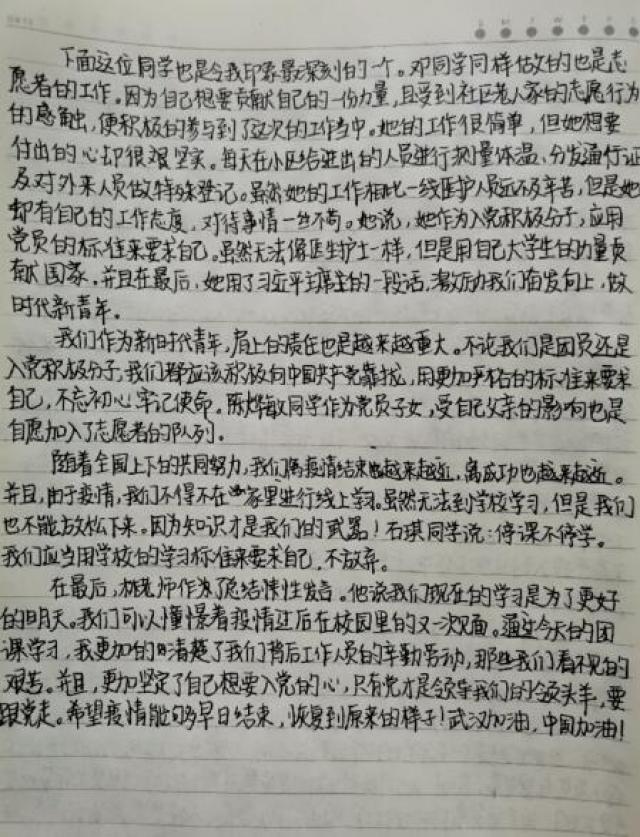 下面这位同学也是令我印象最深刻的一个。邓同学同样做的也是志
愿者的工作。因为自己想要贡献自己的一份力量,且受到社区老人家的志愿行为
的感触,便积极的参与到了这次的工作当中。她的工作很简单,但她想要
付出的心却很艰坚实。每天在小区给进出的人员进行测量体温、分发通行证
及对外来人员做特殊登记。虽然她的工作相比一线医护人员远不及辛苦,但是她
却有自己的工作态度,对待事情一丝不苟。她说,她作为入党积极分子,应用
党员的标准来要求自己。虽然无法像医生护士一样,但是用自己大学生的力量贡
献国家。并且在最后,她用了习近平主席的一段话,激励我们奋发向上,做
时代新青年。
我们作为新时代青年,肩上的责任也是越来越重大。不论我们是团员还是
入党积极分子,我们都应该积极向中国共产党靠拢,用更加严格的标准来要求
自己,不忘初心,牢记使命。陈烨敏同学作为党员子女,受自己父亲的影响也是
自愿加入了志愿者的队列。
随着全国上下的共同努力,我们离疫情结束越来越近,离成功也越来越近。
并且,由于疫情,我们不得不在家里进行线上学习。虽然无法到学校学习,但是我们
也不能放松下来。因为知识才是我们的武器!石琪同学说:停课不停学。
我们应当用学校的学习标准来要求自己,不放弃。
在最后,老师作为了总结性发言。他说我们现在的学习是为了更好
的明天。我们可以憧憬着疫情过后在校园里的又一次见面。通过今天的团
课学习,我更加的清楚了我们背后工作人员的辛勤劳动,那些我们看不见的
艰苦。并且,更加坚定了自己想要入党的心,只有党才是领导我们的领头羊,要
跟党走。希望疫情能够早日结束,恢复到原来的样子!武汉加油,中国加油!